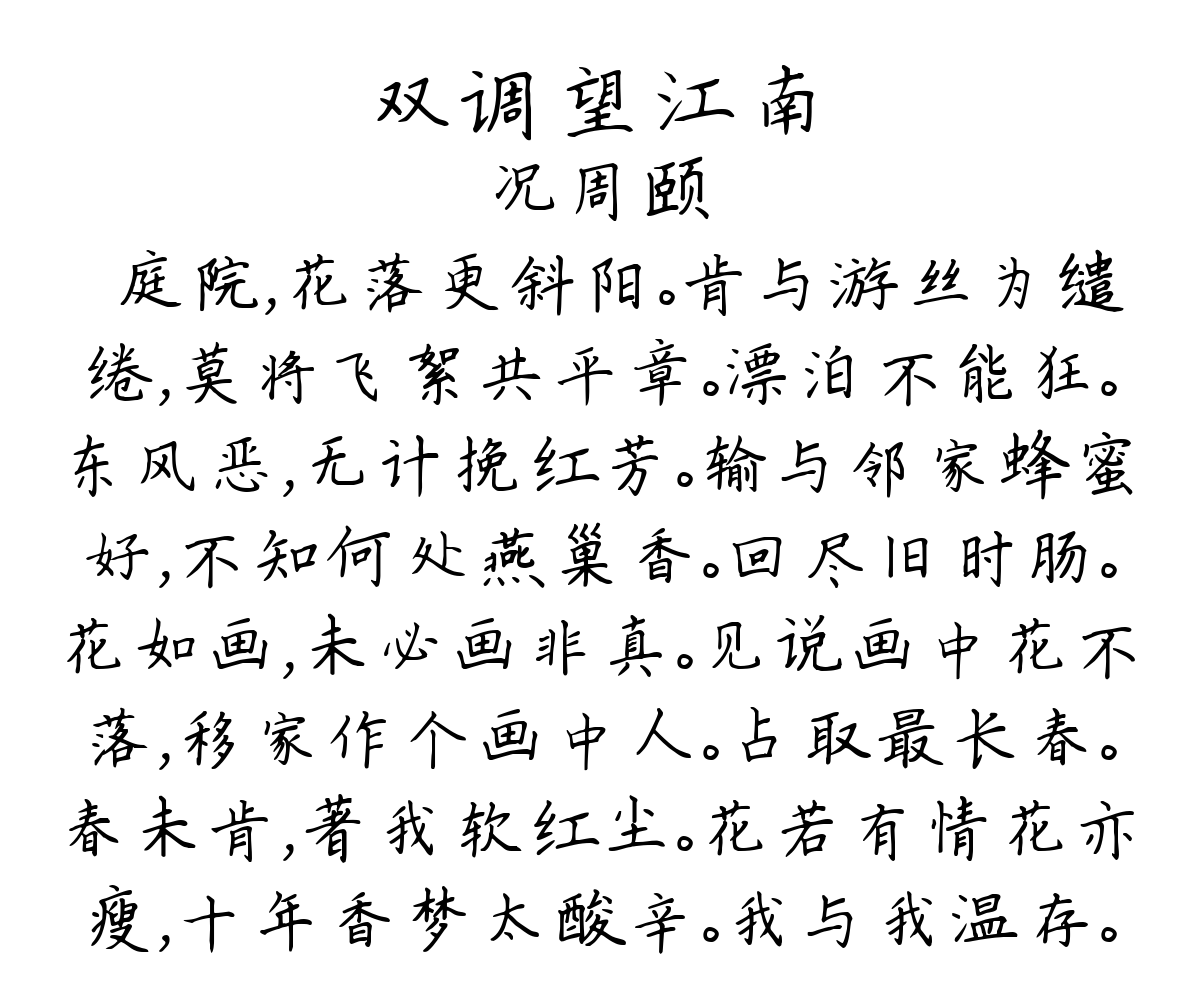 双调望江南
况周颐
庭院,花落更斜阳。肯与游丝为缱
绻,莫将飞絮共平章。漂泊不能狂。
东风恶,无计挽红芳。输与邻家蜂蜜
好,不知何处燕巢香。回尽旧时肠。
花如画,未必画非真。见说画中花不
落,移家作个画中人。占取最长春。
春未肯,著我软红尘。花若有情花亦
瘦,十年香梦太酸辛。我与我温存。